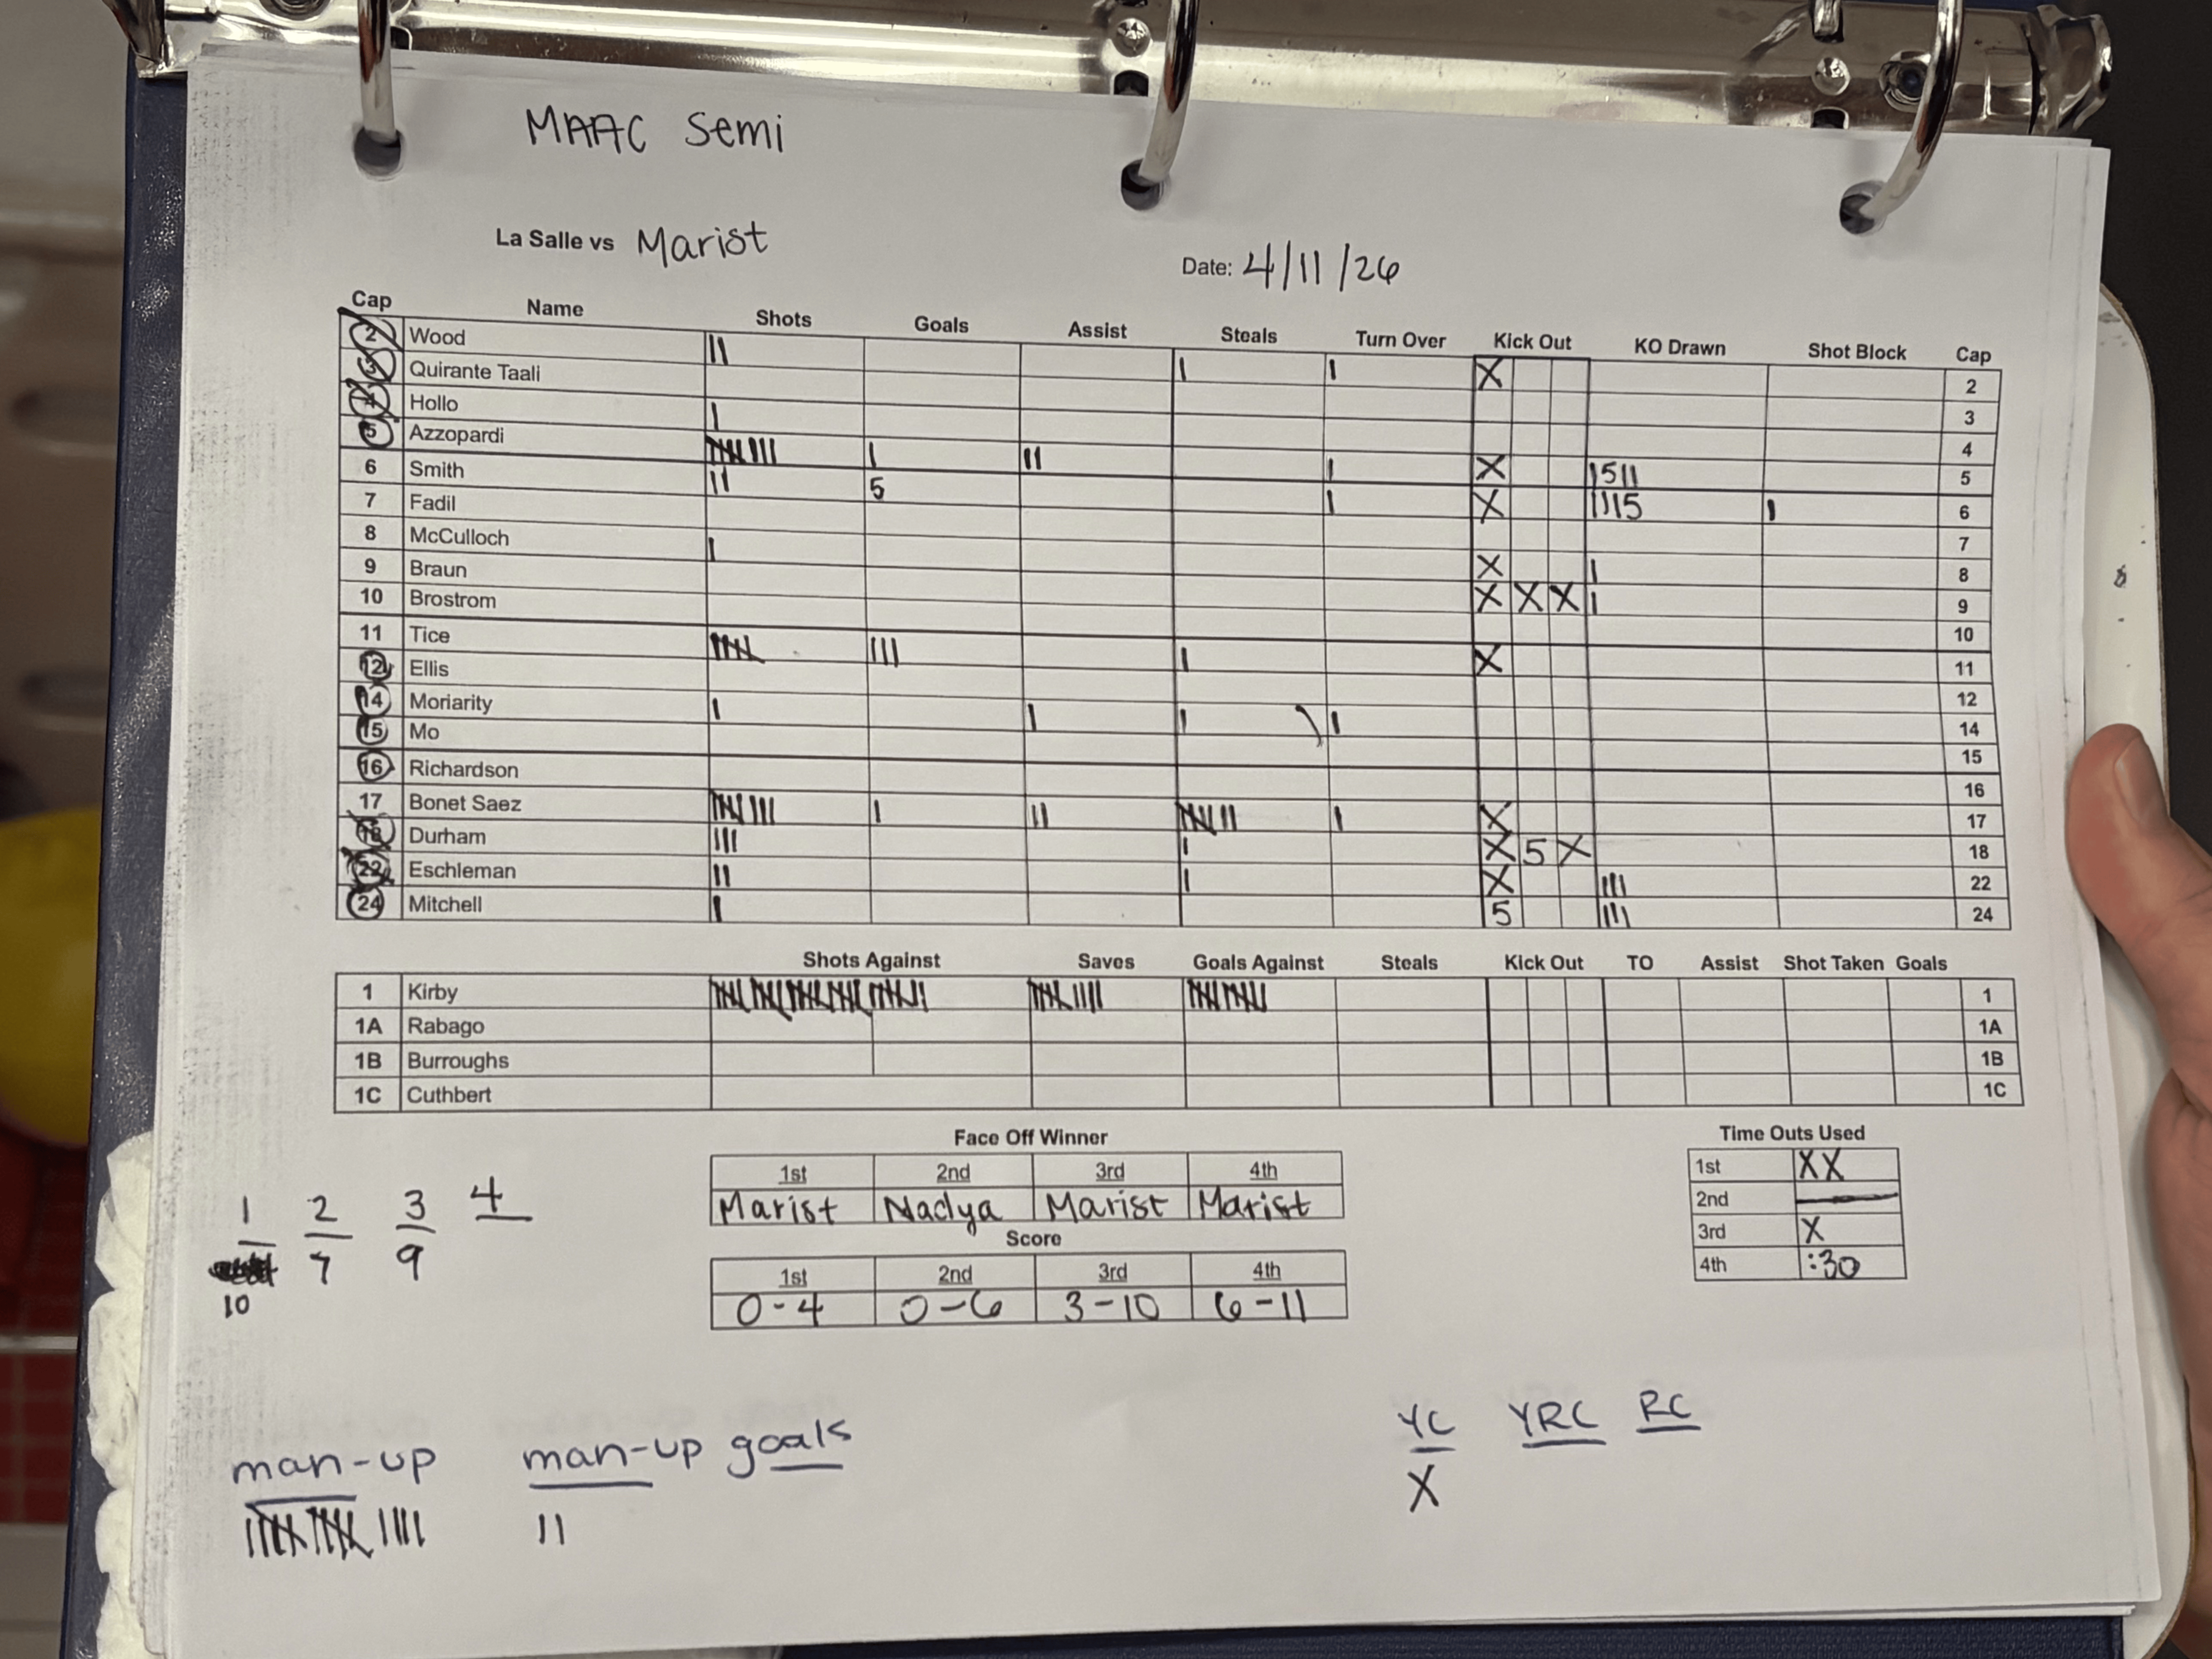 MAAC Semi
La Salle vs Marist
Date: 4/11/26
Cap Name Shots Goals Assist Steals Turn Over Kick Out KO Drawn Shot Block Cap
2 Wood || | | X 2
3 Quirante Taali 3
4 Hollo | 4
5 Azzopardi |||||||| | || | X 1511 5
6 Smith || 5 | X 1115 | 6
7 Fadil 7
8 McCulloch | X | 8
9 Braun X X X | 9
10 Brostrom 10
11 Tice ||||| ||| | X 11
12 Ellis 12
14 Moriarity | | | | 14
15 Mo 15
16 Richardson 16
17 Bonet Saez |||||||| | || ||||||| | X 17
18 Durham ||| | X 5 X 18
22 Eschleman || | X ||| 22
24 Mitchell | 5 ||| 24
Shots Against Saves Goals Against Steals Kick Out TO Assist Shot Taken Goals
1 Kirby 1
1A Rabago 1A
1B Burroughs 1B
1C Cuthbert 1C
Face Off Winner
1st 2nd 3rd 4th
Marist Nadya Marist Marist
Score
1st 2nd 3rd 4th
0-4 0-6 3-10 6-11
Time Outs Used
1st XX
2nd —
3rd X
4th :30
1 2 3 4
7 9
10
man-up man-up goals
|||||||||||||| ||
YC YRC RC
X